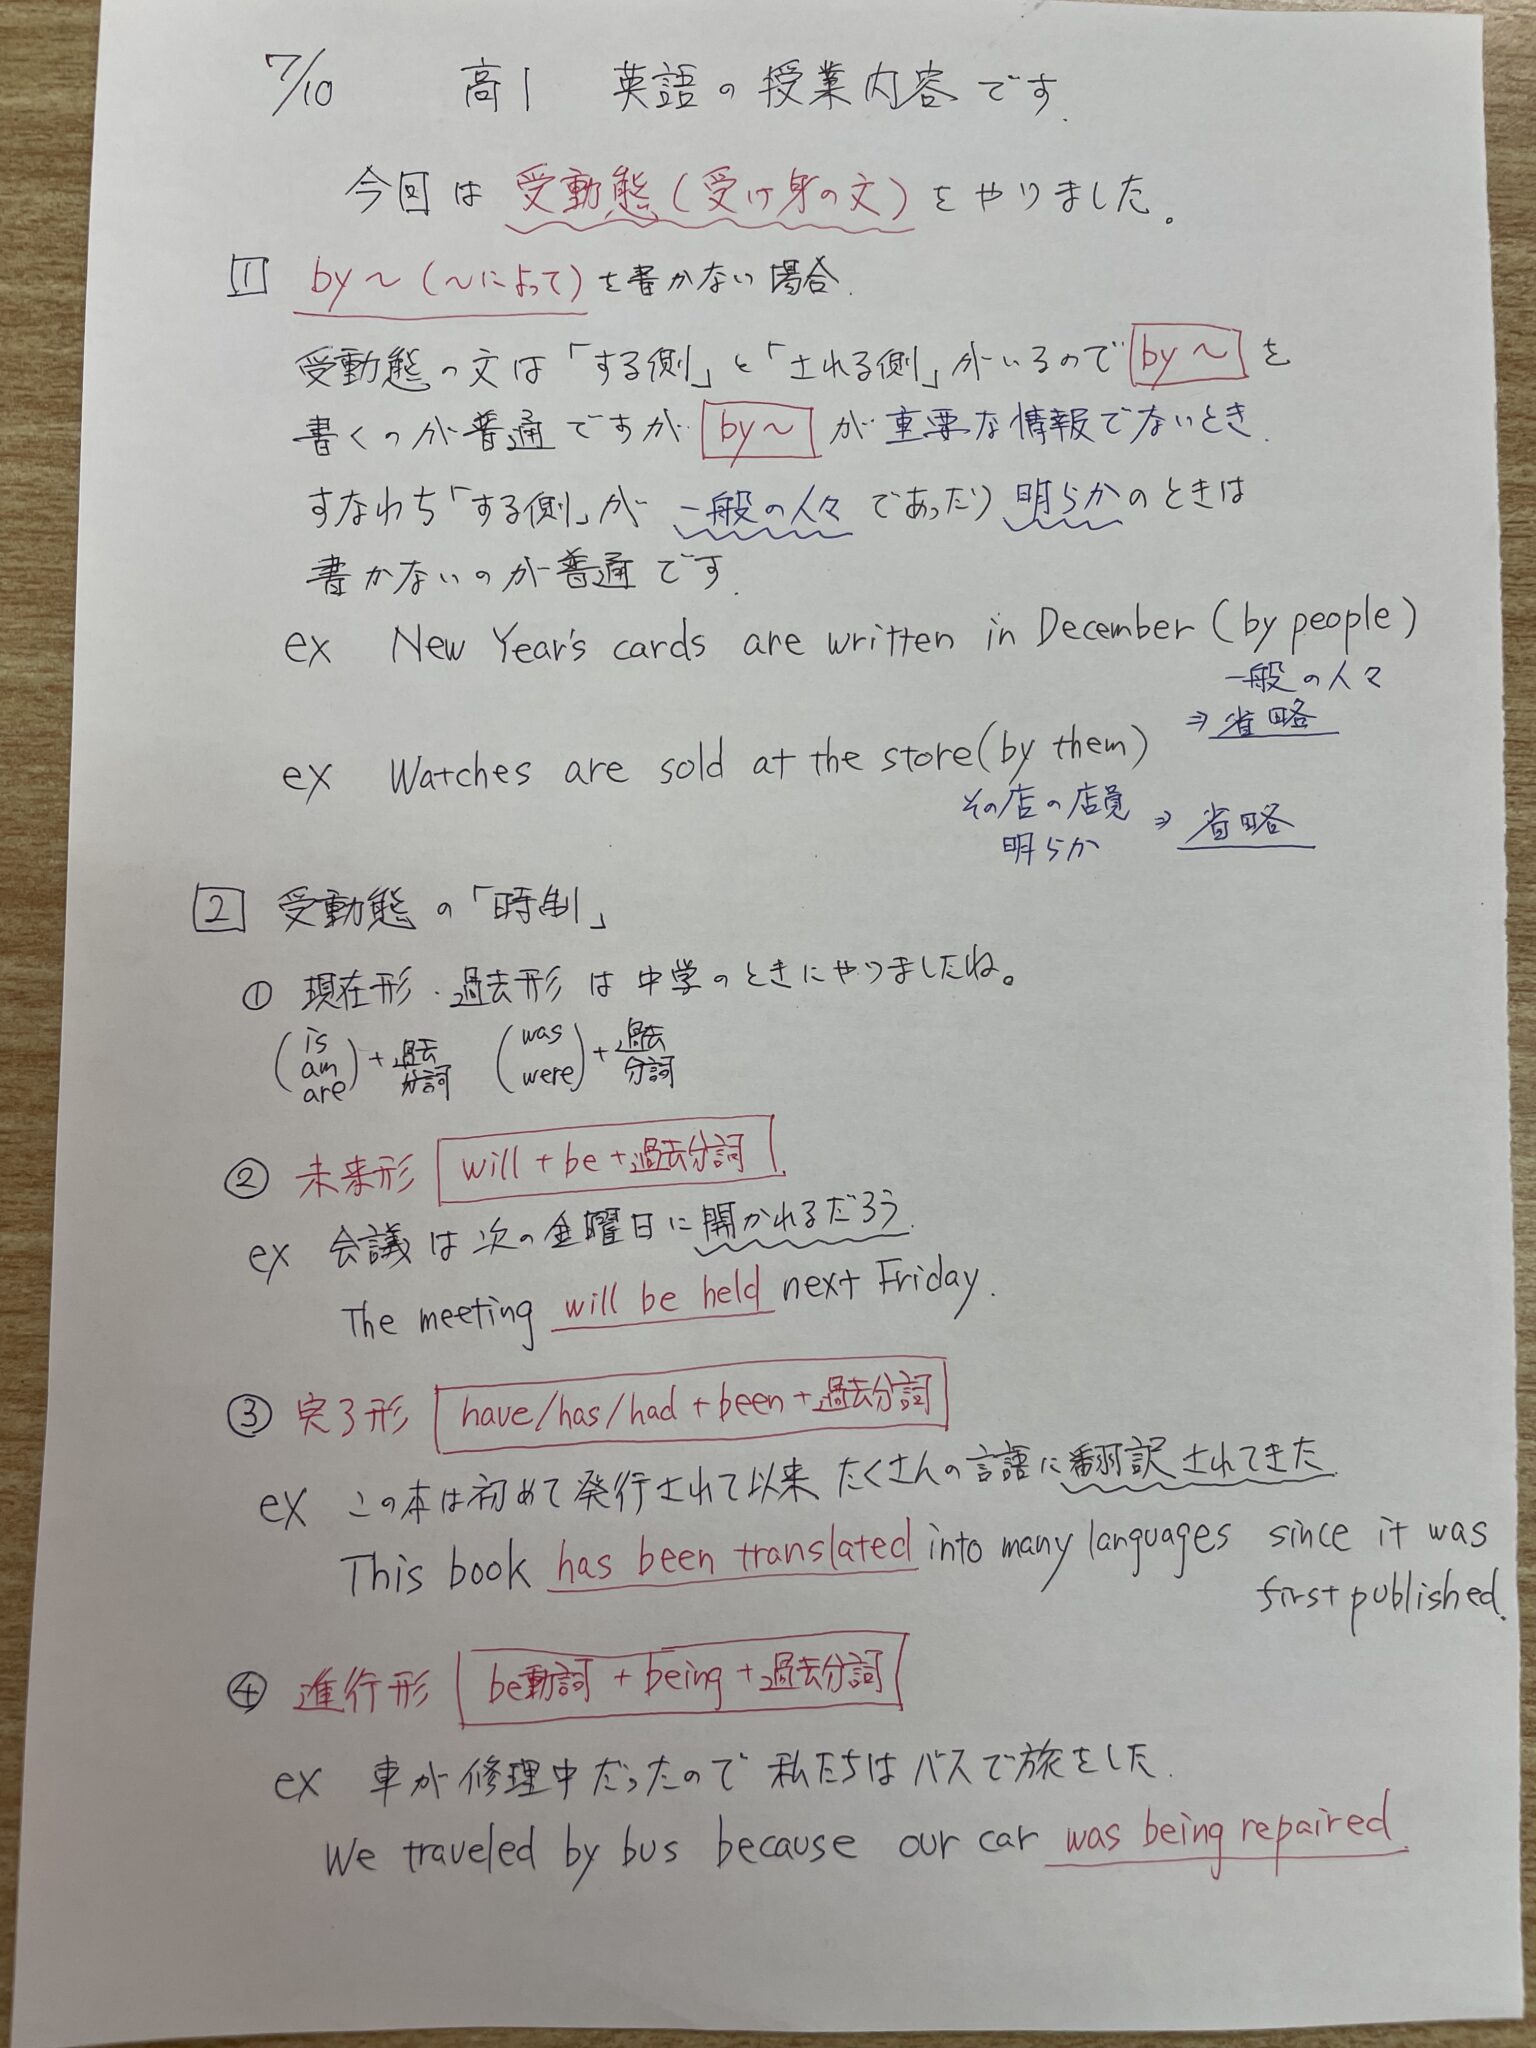 7/10 高1 英語の授業内容です.
今回は 受動態(受け身の文)をやりました。
1 by～(～によって)を書かない場合.
受動態の文は「する側」と「される側」がいるので by～ を
書くのが普通ですが by～ が重要な情報でないとき.
すなわち「する側」が 一般の人々 であったり 明らかのときは
書かないのが普通です.
ex New Year's cards are written in December (by people)
一般の人々
⇒ 省略
ex Watches are sold at the store (by them)
その店の店員 ⇒ 省略
明らか
2 受動態の「時制」
① 現在形・過去形は中学のときにやりましたね。
(is am are) + 過去分詞 (was were) + 過去分詞
② 未来形 will + be + 過去分詞.
ex 会議は次の金曜日に開かれるだろう.
The meeting will be held next Friday.
③ 完了形 have/has/had + been + 過去分詞
ex この本は初めて発行されて以来 たくさんの言語に翻訳されてきた.
This book has been translated into many languages since it was
first published.
④ 進行形 be動詞 + being + 過去分詞
ex 車が修理中だったので 私たちはバスで旅をした.
We traveled by bus because our car was being repaired.